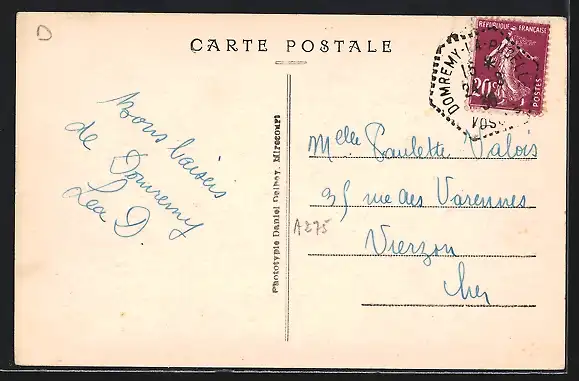 D
CARTE POSTALE
REPUBLIQUE FRANÇAISE
20c
POSTES
DOMREMY-LA-PUCELLE
VOSGES
Bons baisers
de Domremy
Lea D.
Phototypie Daniel Delboy, Mirecourt
Melle Paulette Valois
35 rue des Varennes
A275
Vierzon
Cher